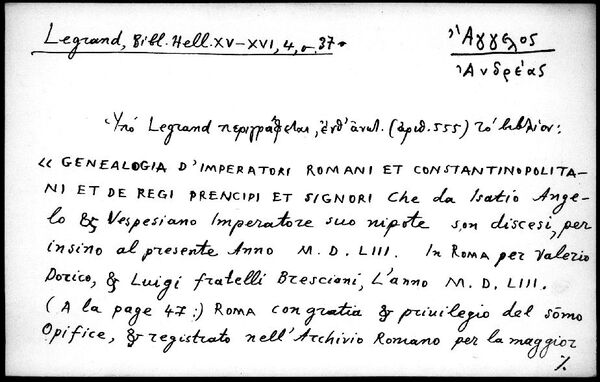 Legrand, Bibl. Hell. XV-XVI, 4, σ. 37.
Ἄγγελος
Ἀνδρέας
Ὑπό Legrand περιγράφεται, ἐνθ' ἀνωτ. (ἀριθ. 555) τό βιβλίον:
« GENEALOGIA D'IMPERATORI ROMANI ET CONSTANTINOPOLITA-
NI ET DE REGI PRENCIPI ET SIGNORI che da Isatio Ange-
lo & Vespesiano Imperatore suo nipote son discesi, per
insino al presente Anno M. D. LIII. In ROMA per Valerio
Dorico, & Luigi fratelli Bresciani, L'anno M. D. LIII.
(A la page 47:) ROMA con gratia & privilegio del sōmo
Opifice, & registrato nell'Archivio Romano per la maggior
%